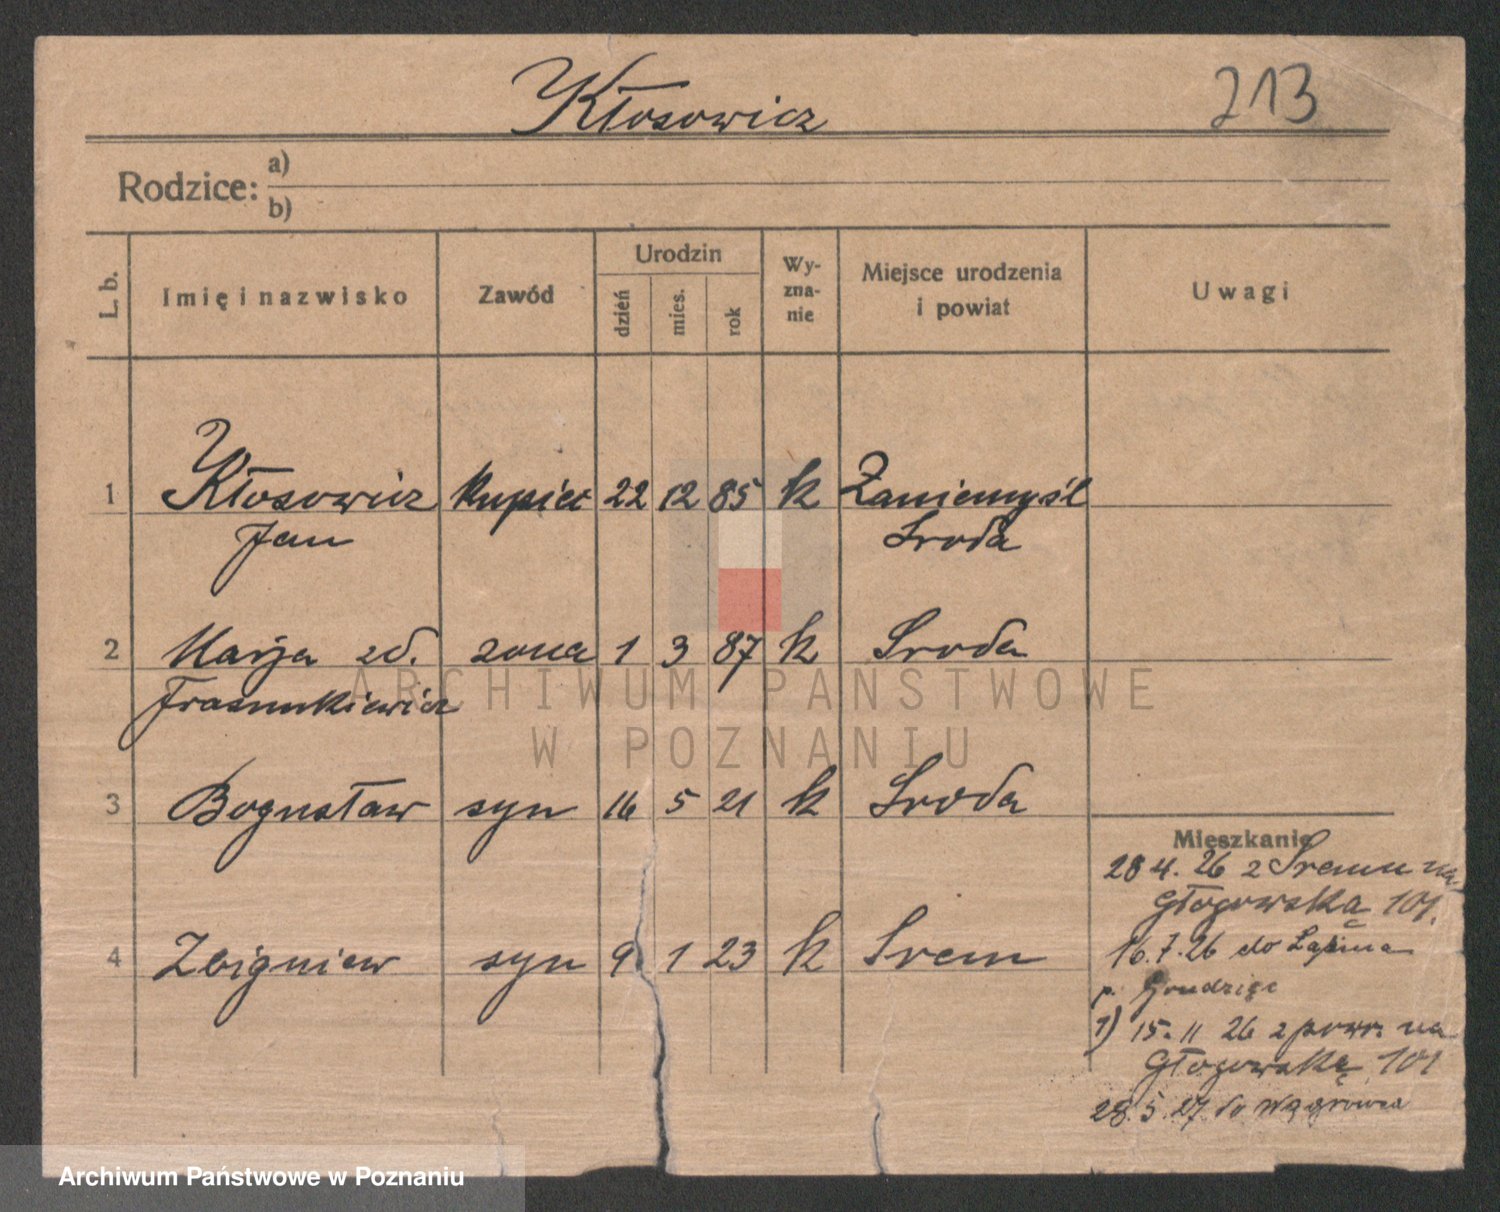 Kłosowicz
213
Rodzice: a)
b)
L. b.
Imię i nazwisko
Zawód
Urodzin
dzień
mies.
rok
Wy-
zna-
nie
Miejsce urodzenia
i powiat
Uwagi
1 Kłosowicz kupiec 22 12 85 k Zaniemyśl
Jan Środa
2 Marja zd. żona 1 3 87 k Środa
Frasunkiewicz
3 Bogusław syn 16 5 21 k Środa
4 Zbigniew syn 9 1 23 k Śrem
Mieszkanie
28 4. 26 z Śremu na
Głogowską 101.
16.7.26 do
p.
1) 15. 11 26 z powr. na
Głogowskę 101
28.5.27. do Wągrówca
ARCHIWUM PAŃSTWOWE
W POZNANIU
Archiwum Państwowe w Poznaniu